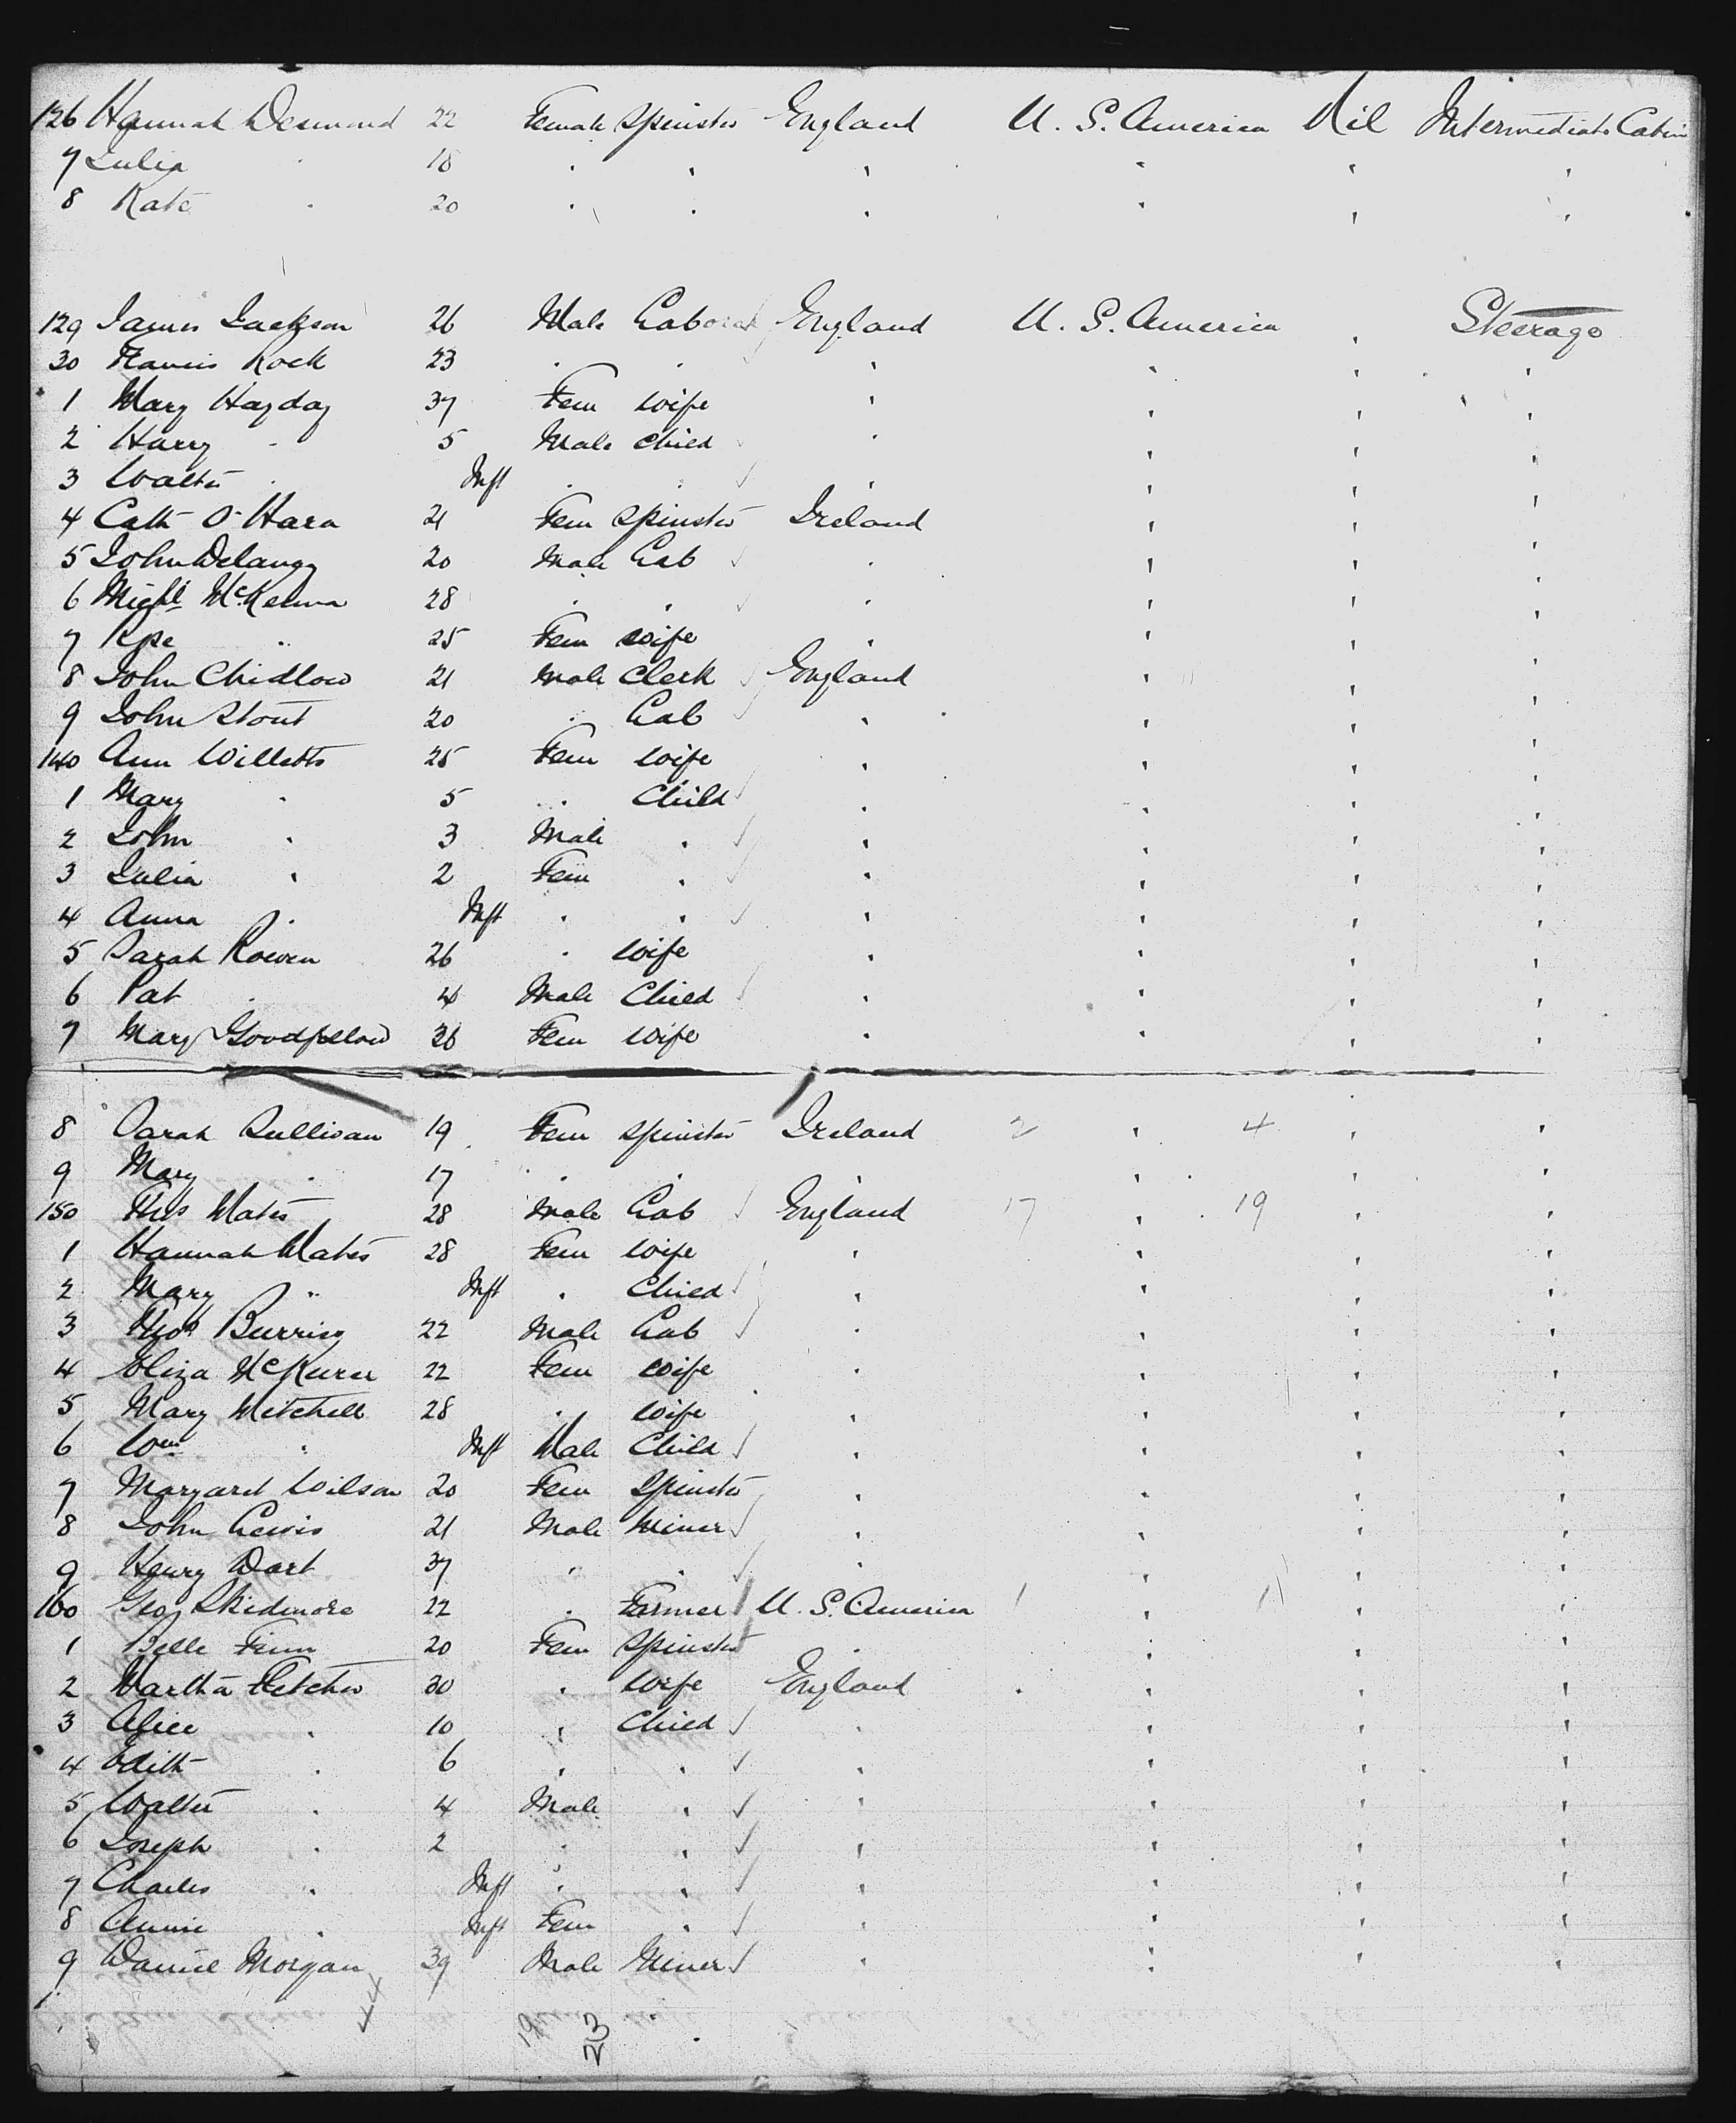 126 Hannah Desmond 22 Female Spinster England U. S. America Nil Intermediate Cabin
7 Julia " 18 " " " " " "
8 Kate " 20 " " " " " "
129 James Jackson 26 Male Laborer England U. S. America " Steerage
30 Francis Rock 23 " " " " " "
1 Mary Hayday 37 Fem Wife " " " "
2 Harry " 5 Male Child " " " "
3 Walter " Inft " " " " " "
4 Cath O'Hara 21 Fem Spinster Ireland " " "
5 John Delaney 20 Male Lab " " " "
6 Michl McKenna 28 " " " " " "
7 " 25 Fem Wife " " " "
8 John Chidlow 21 Male Clerk England " " "
9 John Stout 20 " Lab " " " "
140 Ann Willetts 25 Fem Wife " " " "
1 Mary " 5 " Child " " " "
2 John " 3 Male " " " " "
3 Julia " 2 Fem " " " " "
4 Anna " Inft " " " " " "
5 Sarah Rowen 26 " Wife " " " "
6 Pat " 4 Male Child " " " "
7 Mary Goodfellow 26 Fem Wife " " " "
8 Sarah Sullivan 19 Fem Spinster Ireland 2 " 4 " "
9 Mary " 17 " " " " " "
150 Mates 28 Male Lab England 17 " 19 " "
1 Hannah Mates 28 Fem Wife " " " "
2 Mary " Inft " Child " " " "
3 Thos Burring 22 Male Lab " " " "
4 Eliza 22 Fem Wife " " " "
5 Mary Mitchell 28 " Wife " " " "
6 Wm " Inft Male Child " " " "
7 Margaret Wilson 20 Fem Spinster " " " "
8 John Lewis 21 Male Miner " " " "
9 Henry Dart 37 " " " " " "
160 Geo Skidmore 22 " Farmer U. S. America 1 " 1 " "
1 Belle Finn 20 Fem Spinster " " " "
2 Martha Fletcher 30 " Wife England " " "
3 Alice " 10 " Child " " " "
4 Edith " 6 " " " " " "
5 Walter " 4 Male " " " " "
6 Joseph " 2 " " " " " "
7 Charles " Inft " " " " " "
8 Annie " Inft Fem " " " " "
9 Daniel Morgan 39 Male Miner " " " "
44 19 23